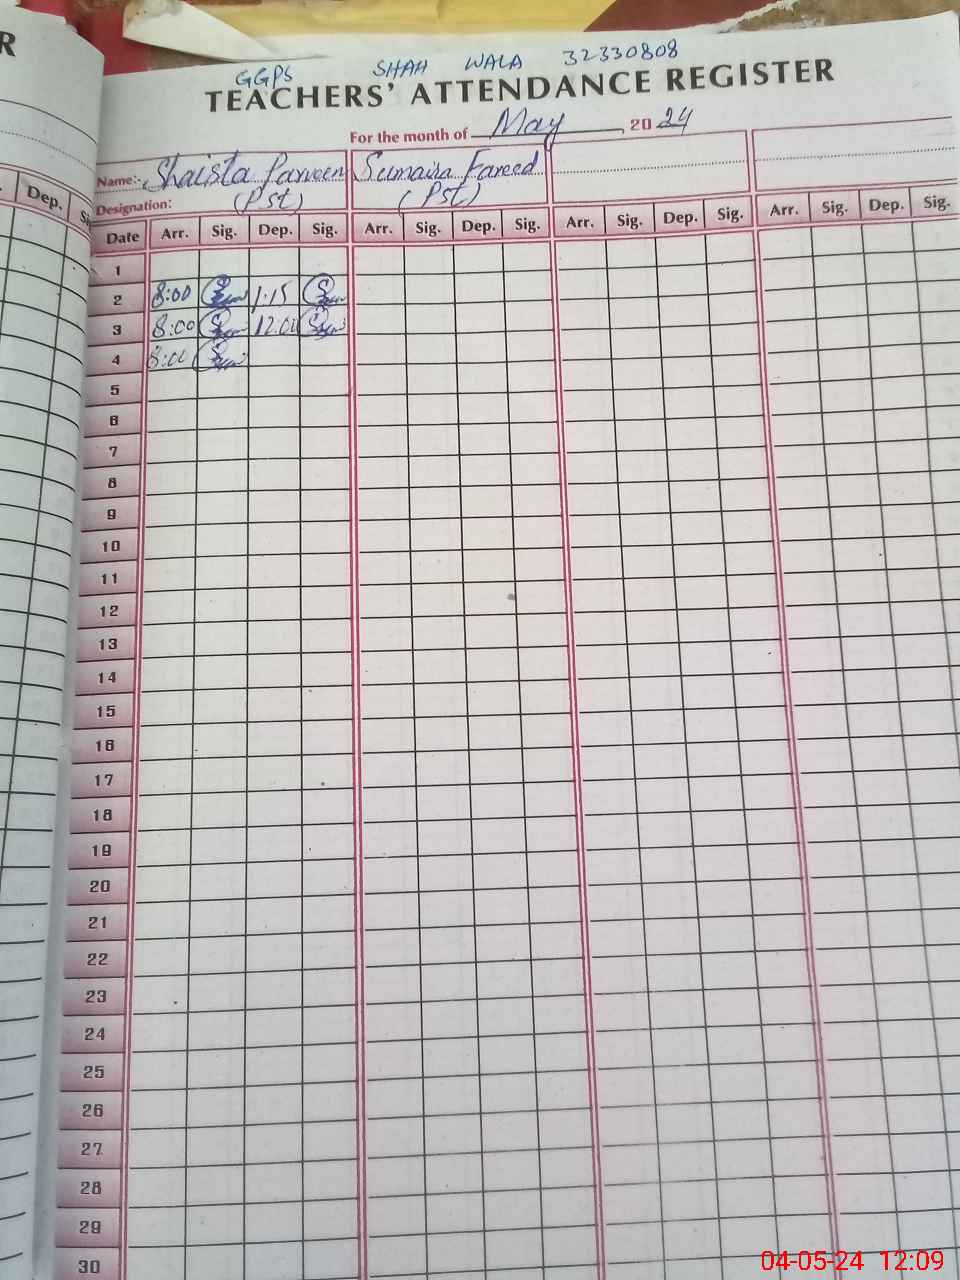 R
GGPS SHAH WALA 32330808
TEACHERS' ATTENDANCE REGISTER
For the month of May, 2024
Name:- Shaista Parveen Sumaira Fareed
Designation: (Pst) (Pst)
Dep.
Date Arr. Sig. Dep. Sig. Arr. Sig. Dep. Sig. Arr. Sig. Dep. Sig. Arr. Sig. Dep. Sig.
1
2 8:00 1.15
3 8:00 12.00
4 8:00
5
6
7
8
9
10
11
12
13
14
15
16
17
18
19
20
21
22
23
24
25
26
27
28
29
30
04-05-24 12:09